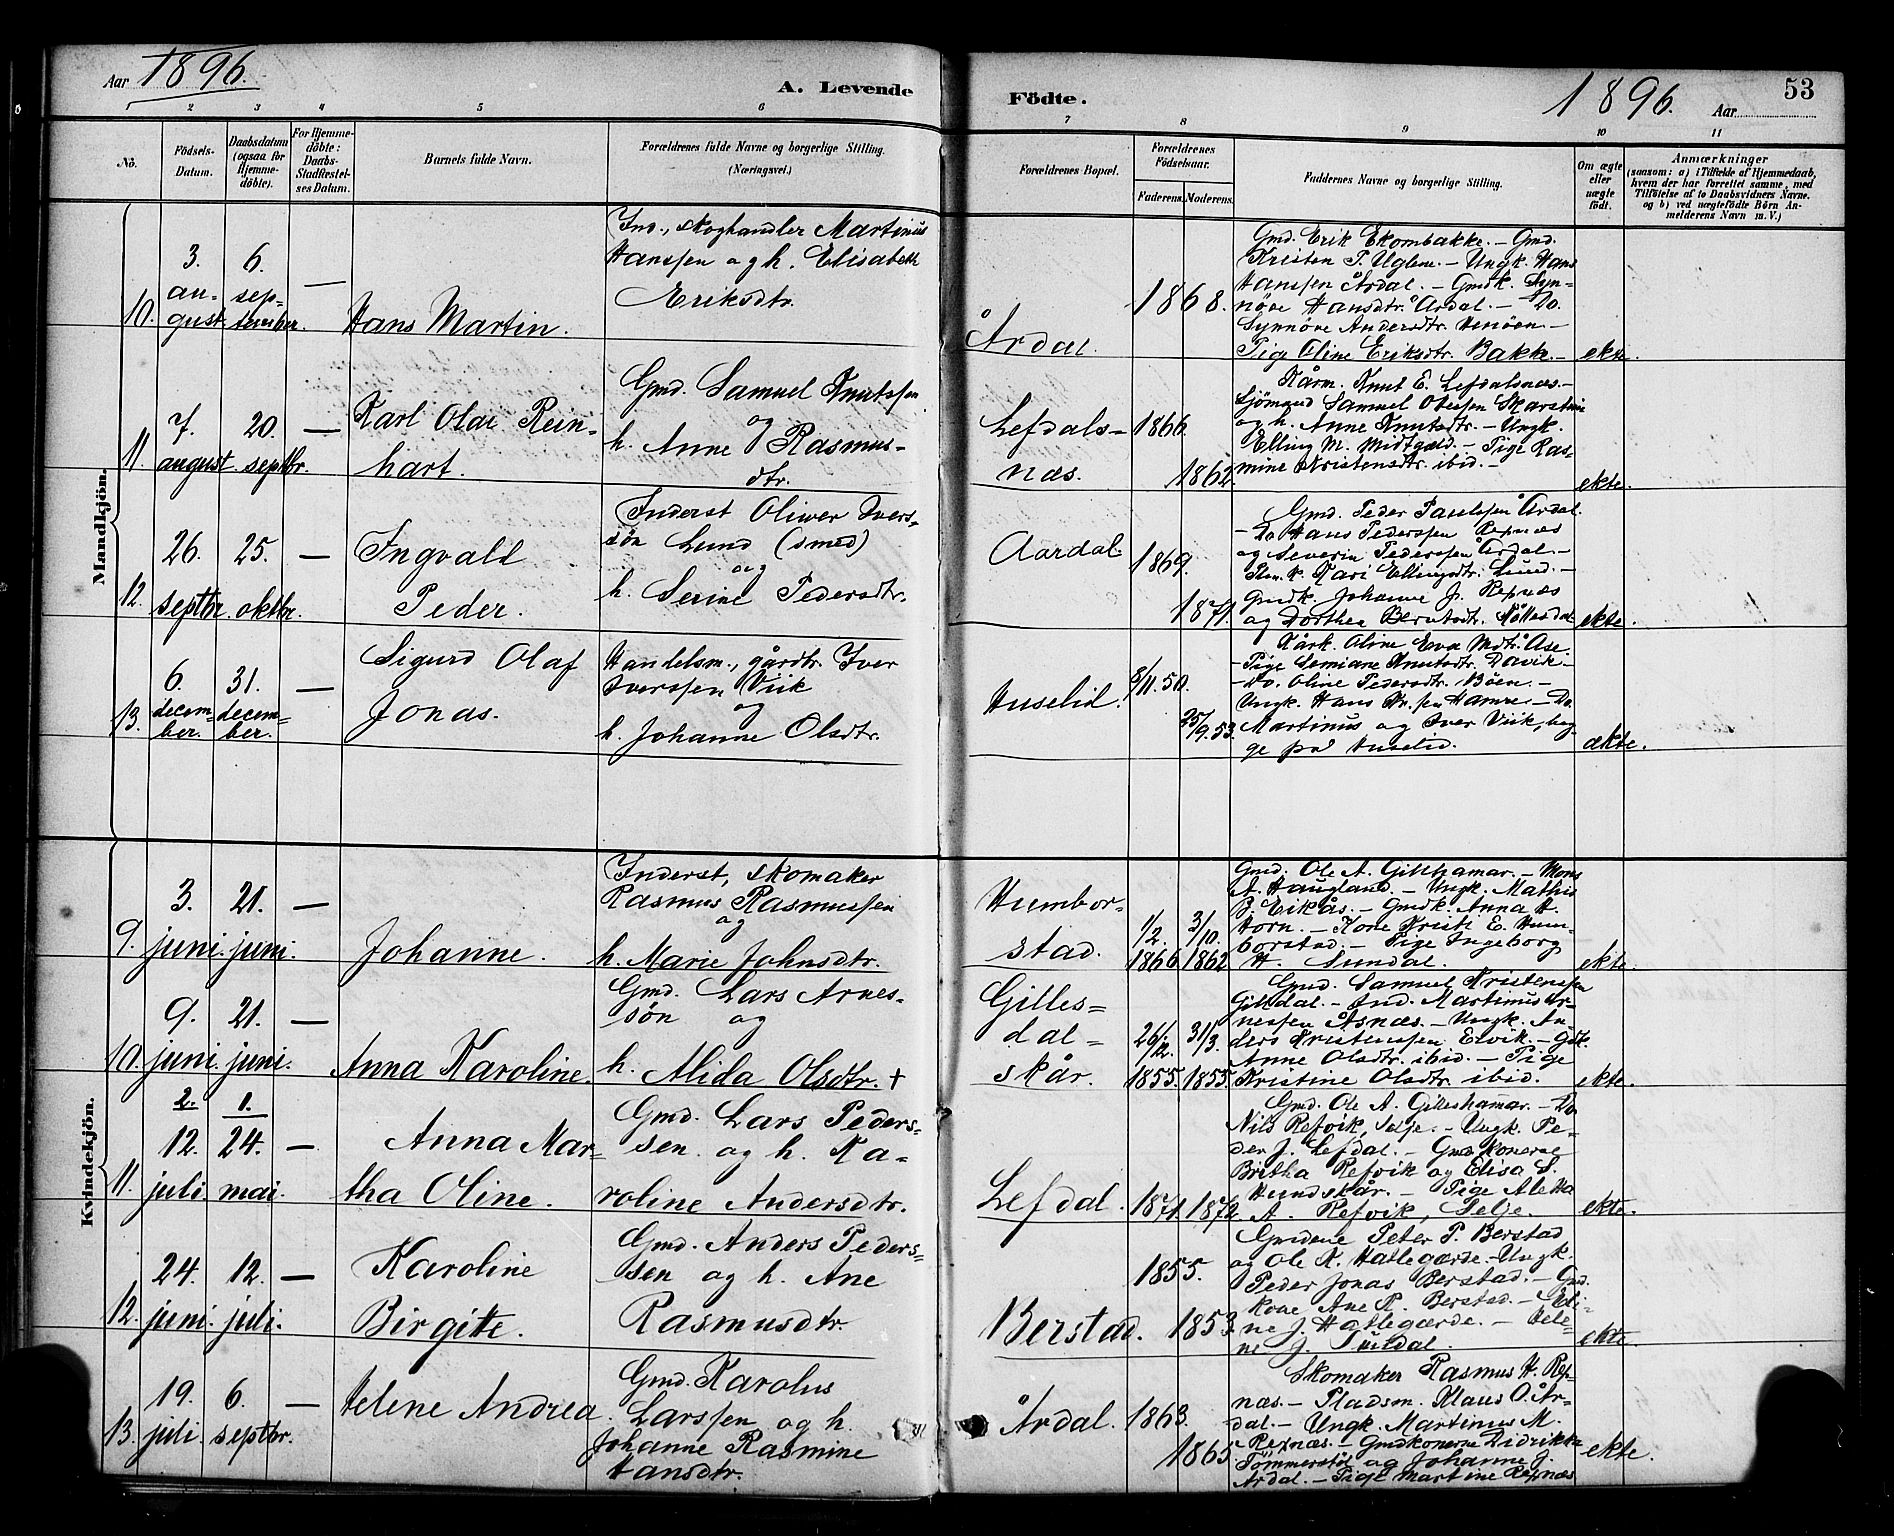 Aar 1896.
A. Levende
Födte.
1896. Aar
53
2 3 4 5 6 7 8 9 10 11
No.
Födsels-
Datum.
Daabsdatum
(ogsaa for
Hjemme-
döbte).
For Hjemme-
döbte:
Daabs-
Stadfæstel-
ses Datum.
Barnets fulde Navn.
Forældrenes fulde Navne og borgerlige Stilling.
(Næringsvei.)
Forældrenes Bopæl.
Forældrenes
Födselsaar.
Faderens. Moderens.
Faddernes Navne og borgerlige Stilling.
Om ægte
eller
uægte
födt.
Anmærkninger
(saasom: a) i Tilfælde af Hjemmedaab,
hvem der har forrettet samme, med
Tilföielse af to Daabsvidners Navne.
og b) ved uægtefödte Börn An-
melderens Navn m. V.)
Mandkjön.
10.
3.
au-
gust.
6.
sep-
tember.
—
Hans Martin.
Ind., skoghandler Martinus
Hanssen og h. Elisabeth
Eriksdtr.
Årdal.
1868.
Gmd. Erik Ekombakke. — Gmd.
Kristen P. Uglene. — Ungk. Hans
Hanssen Årdal. — Gmdk. Syn-
növe Hansdtr. Årdal. — Do.
Synnöve Andersdtr. Henöen. —
Pige Oline Eriksdtr. Bakk. —
ekte.
11.
7.
august
20.
septbr.
—
Karl Olai Rein-
hart.
Gmd. Samuel Knutssen
og
h. Anne Rasmus-
dtr.
Lefdals-
næs.
1866.
1862.
Kårm. Knut E. Lefdalsnæs. —
Sjömand Samuel Olessen
og h. Anne Knutsdtr. — Ungk.
Elling M. Midtgæld. — Pige Ras-
mine Kristensdtr. ibid. —
ekte.
12.
26.
septbr.
25.
oktbr.
—
Ingvald
Peder.
Inderst Oliver Ivers-
sön Lund (smed)
og
h. Serine Pedersdtr.
Aardal.
1869.
1871.
Gmd. Peder Paulssen Årdal.
— Do Hans Pederssen Rexnæs
og Severin Pederssen Årdal. —
Kari Ellingsdtr. Lund. —
Gmdk. Johanne J. Rexnæs
og Dorthea Berntsdtr.
ekte.
13.
6.
decem-
ber.
31.
decem-
ber.
—
Sigurd Olaf
Jonas.
Handelsm., gårdtr. Iver
Iverssen Viik
og
h. Johanne Olsdtr.
Huselid.
8/11. 50.
25/9. 53.
Kårk. Oline Eva Mdtr. Åse.
— Pige Samiane Knutsdtr. Davik. —
— Do. Oline Pedersdtr. Böen. —
Ungk. Hans Kr. sen Hamre. — Do
Martinus og Iver Viik, beg-
ge på Huselid.
ækte.
Kvindekjön.
9.
3.
juni.
21.
juni.
—
Johanne.
Inderst, skomaker
Rasmus Rasmussen
og
h. Marie Johnsdtr.
Humbor-
stad.
1/2.
1866
3/10.
1862
Gmd. Ole A. Gilleshamar. — Mons
A. Haugland. — Ungk. Mathis
B. Eikås. — Gmdk. Anna H.
Horn. — Kone Kristi E. Hum-
borstad. — Pige Ingeborg
H. Sundal.
ekte.
10.
9.
juni.
21.
juni.
—
Anna Karoline.
Gmd. Lars Arnes-
sön og
h. Alida Olsdtr. +
Gilles-
dal-
skår.
26/12.
1855.
31/3.
1855.
Gmd. Samuel Kristenssen
Gilsdal. — Ind. Martinus Ar-
nessen Åsnæs. — Ungk. An-
ders Kristenssen Elvik. — Gdk.
Anne Olsdtr. ibid. — Pige
Kristine Olsdtr. ibid.
ekte.
11.
2.
12.
juli.
1.
24.
mai.
—
Anna Mar-
tha Oline.
Gmd. Lars Peders-
sen og h. Ka-
roline Andersdtr.
Lefdal.
1871.
1872.
Gmd. Ole A. Gilleshamar. — Do
Nils Refvik, Selje. — Ungk. Pe-
der J. Lefdal. — Gmdkonerne
Britha Refvik og Elisa S.
Hundskår. — Pige Aletta
A. Refvik, Selje.
ekte.
12.
24.
juni.
12.
juli.
—
Karoline
Birgitte.
Gmd. Anders Peders-
sen og h. Ane
Rasmusdtr.
Berstad.
1855.
1853.
Gmdene Peter P. Berstad
og Ole K. Hatlegærde. — Ungk.
Peder Jonas Berstad. — Gmd.
kone Ane R. Berstad. — Eli-
ne J. Hatlegærde. — Hele-
ne J.
ekte.
13.
19.
juli.
6.
septbr.
—
Helene Andrea.
Gmd. Karolus
Larssen og h.
Johanne Rasmine
Hansdtr.
Årdal.
1863.
1865.
Skomaker Rasmus H. Rex-
næs. — Pladsm. Klaus O. År-
dal. — Ungk. Martinus M.
Rexnæs. — Gmdkonerne Didrikka
Tömmerstöl og Johanne J.
Årdal. — Pige Martine Rexnæs
ekte.